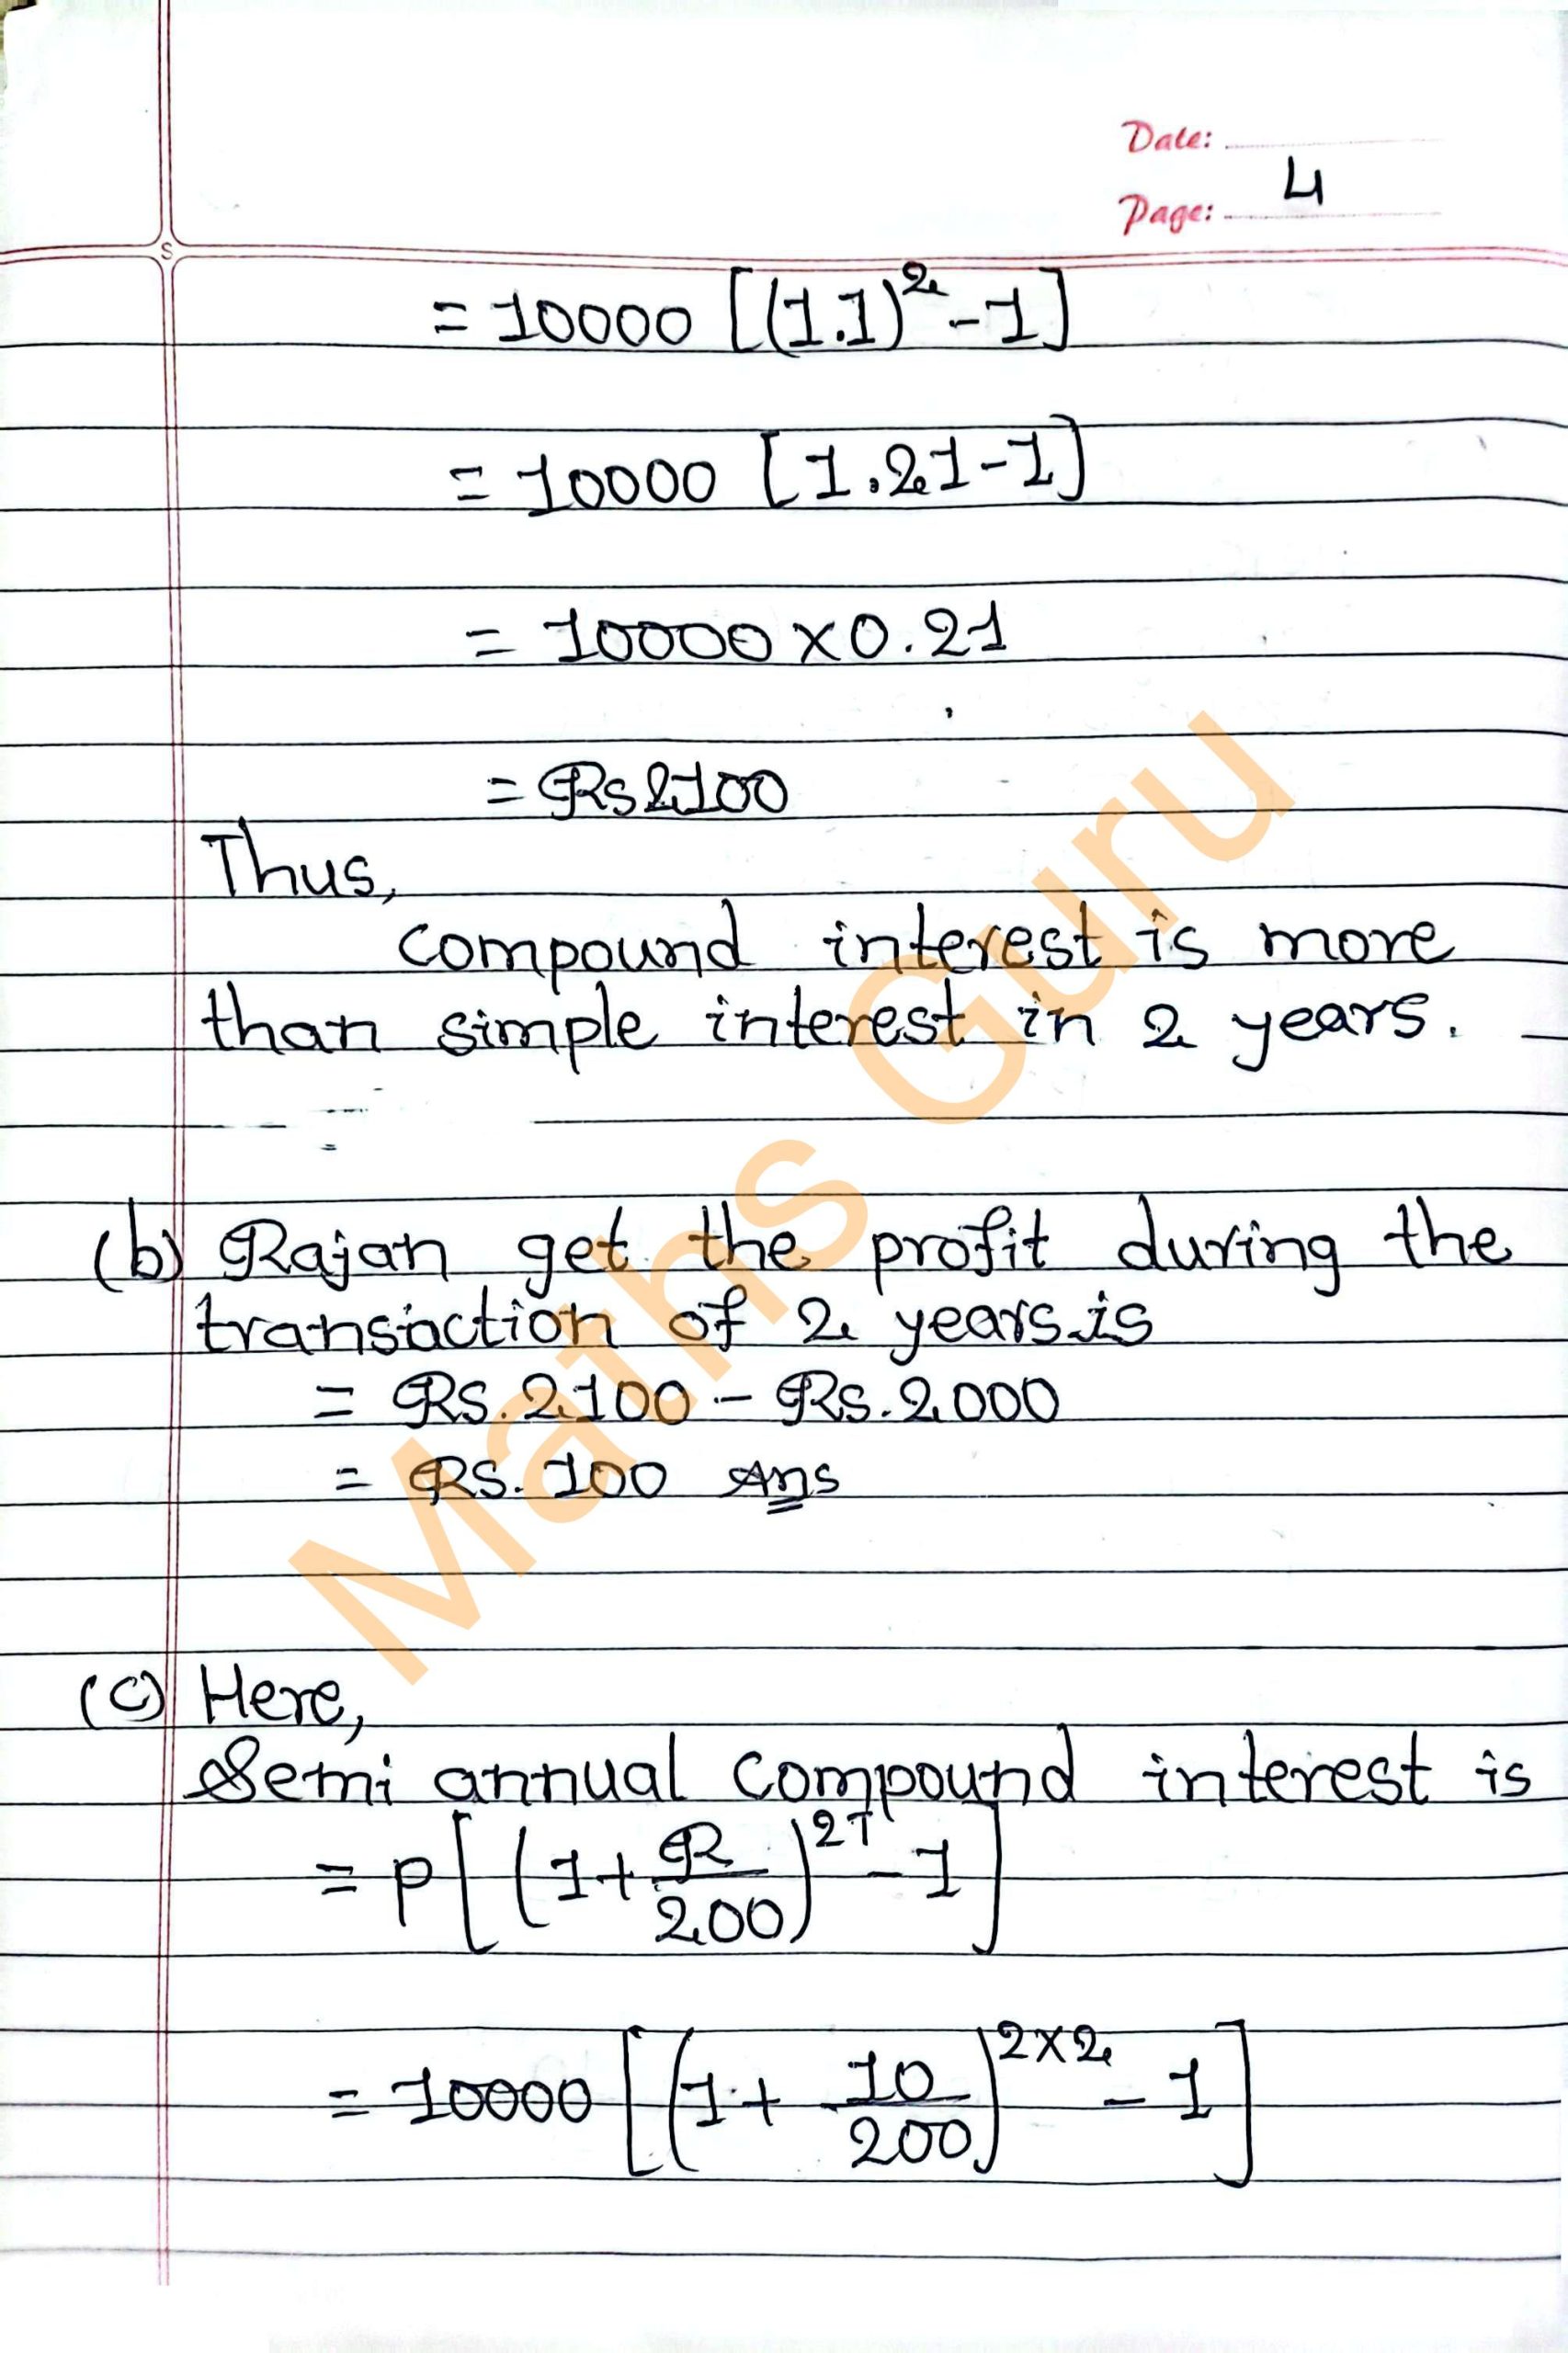 Date:
Page: 4
S
= 10000 [(1.1)² - 1]
= 10000 [1.21-1]
= 10000 × 0.21
= Rs 2100
Thus,
compound interest is more
than simple interest in 2 years.
(b) Rajan get the profit during the
transaction of 2 years is
= Rs. 2100 - Rs. 2000
= Rs. 100 Ans
(c) Here,
Semi annual compound interest is
= P[(1+R/200)^2T - 1]
= 10000[(1+ 10/200)^2×2 - 1]
Maths Guru